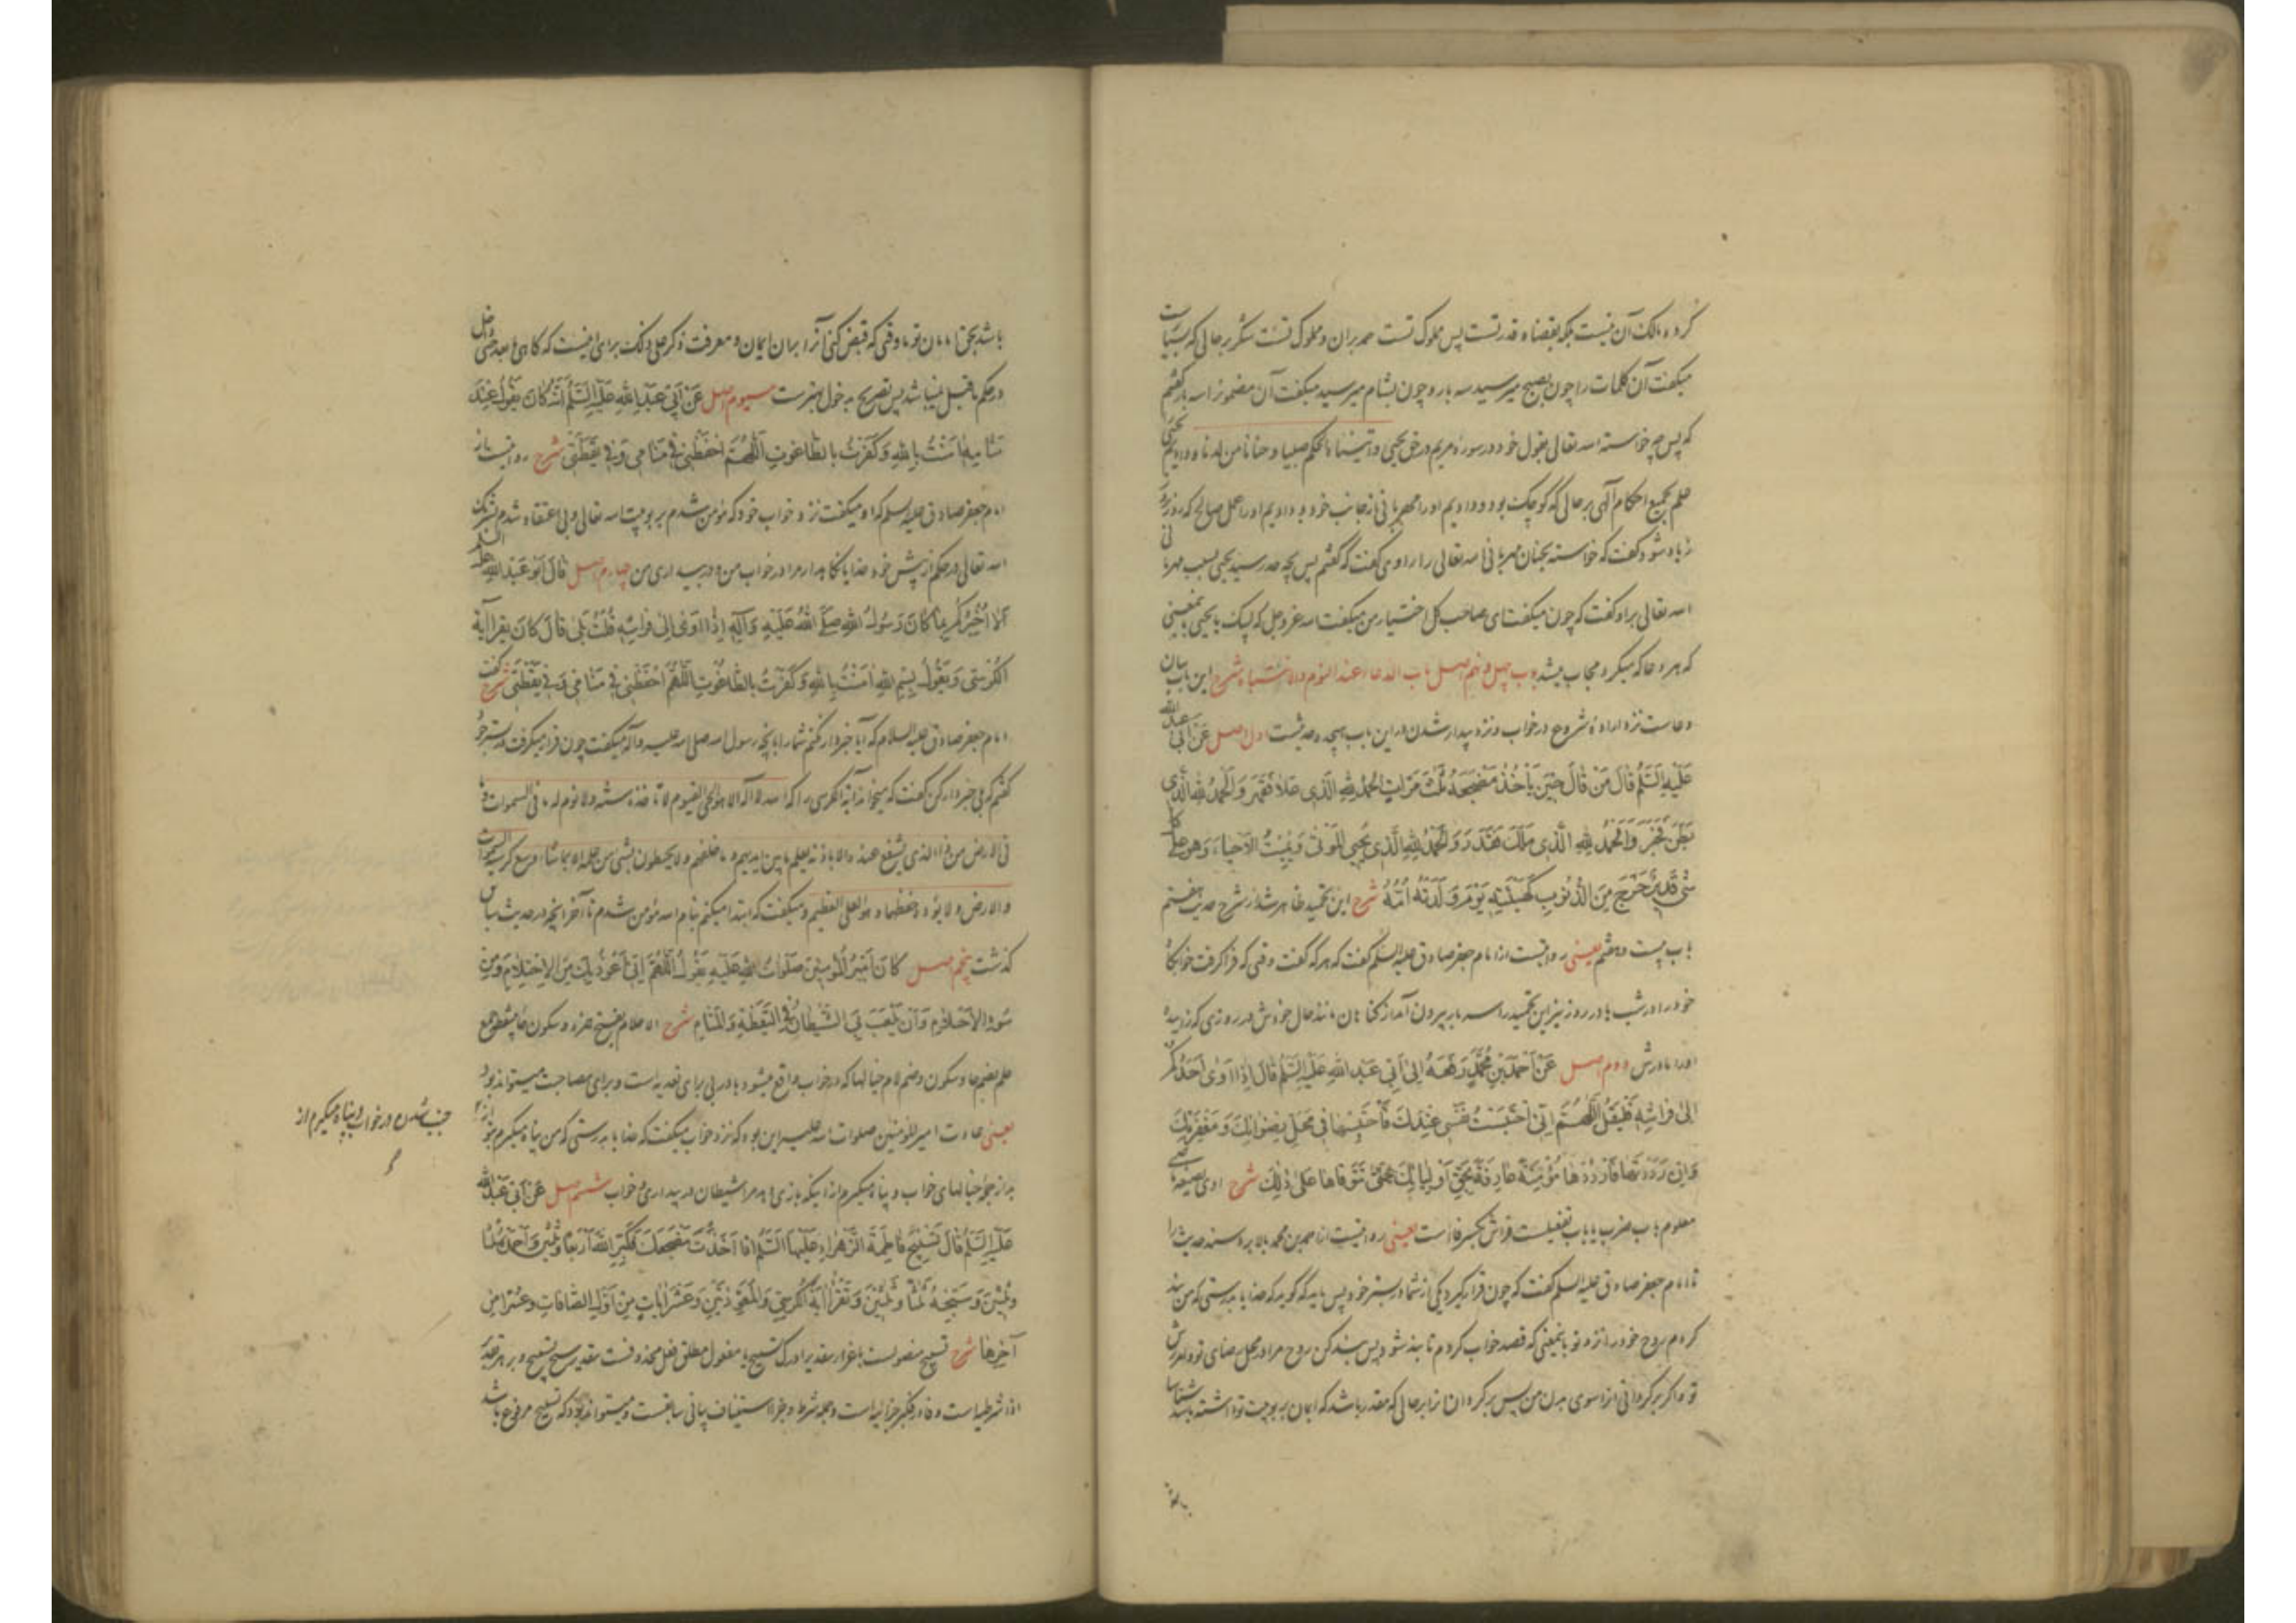 کرده مالک آن نیست بلکه بقضا و قدر تست پس مملوک تست مدبران و مملوک تست شکر بر حالی که
میکفت آن کلمات را چون بصبح میرسید سه بار و چون بشام میرسید میکفت آن مضمون را سه بار کفتم
که پس چه خواسته الله تعالی بقول خود در سوره مریم در حق یحیی وآتیناه الحکم صبیا وحنانا من لدنا ودادیم یحیی
علم بجمیع احکام آلهی بر حالی که کوچک بود ودادیم او را مهربانی از جانب خود ودادیم او را عمل صالح که روز بروز
زیاد شود کفت که خواسته بحنان مهربانی الله تعالی را راوی کفت که کفتم پس بچه حد رسید یحیی بسبب مهربانی
الله تعالی بر او کفت که چون میکفت ای صاحب کل اختیار من میکفت الله عز وجل که لبیک یا یحیی بمعنی
که هر دعا که میکرد مجاب میشد باب چهل ونهم اصل باب الدعاء عند النوم والانتباه شرح این باب بیان
دعاست نزد اراده شروع در خواب ونزد بیدار شدن در این باب هیجده حدیثست اول اصل عن ابی عبد الله
علیه السلم قال من قال حین یأخذ مضجعه ثلث مرات الحمد لله الذی علا فقهر والحمد لله الذی
بطن فخبر والحمد لله الذی ملک فقدر والحمد لله الذی یحیی الموتی ویمیت الاحیاء وهو علی کل
شیء قدیر خرج من الذنوب کهیئته یوم ولدته امه شرح این تحمید ظاهر شد در شرح حدیث هفتم
باب بیست وهشتم یعنی روایتست از امام جعفر صادق علیه السلم کفت که هر که کفت وقتی که فرا کرفت خوابکاه
خود را در شب یا در روز نیز این تحمید را سه بار بیرون آمد از کناهان مانند حال خودش در روزی که زاییده
او را مادرش دوم اصل عن احمد بن محمد رفعه الی ابی عبد الله علیه السلم قال اذا اوی احدکم
الی فراشه فلیقل اللهم انی احتبست نفسی عندک فاحتبسها فی محل رضوانک ومغفرتک
وان رددتها فارددها مؤمنة عارفة بحق اولیائک حتی تتوفاها علی ذلک شرح اوی بصیغه
معلوم باب ضرب یا باب تفعیلست فراش بکسر فاست یعنی روایتست از احمد بن محمد بالا برد سند حدیث را
تا امام جعفر صادق علیه السلم کفت که چون قرار کیرد یکی از شما در بستر خود پس باید که کوید که خدایا بدرستی که من بند
کردم روح خود را نزد تو باینمعنی که قصد خواب کردم تا بند شود پس بند کن روح مرا در محل رضای تو وآمرزش
تو واکر بر کردانی آنرا سوی بدن من پس بر کردان آنرا بر حالی که مقدر باشد که ایمان بربوبیت تو داشته باشد شناسا
باشد بحق امامان تو تا وقتی که قبض کنی آنرا بر آن ایمان ومعرفت ذکر علی ذلک برای اینست که کاهی ما بعد حتی داخل
در حکم ما قبل نمیباشد پس تصریح بدخول بهترست سیوم اصل عن ابی عبد الله علیه السلم انه کان یقول عند
منامه آمنت بالله وکفرت بالطاغوت اللهم احفظنی فی منامی وفی یقظتی شرح روایتست از
امام جعفر صادق علیه السلم که او میکفت نزد خواب خود که مؤمن شدم بربوبیت الله تعالی وبی اعتقاد شدم بشریک
الله تعالی در حکم از پیش خود خدایا نکاهدار مرا در خواب من ودر بیداری من چهارم اصل قال ابو عبد الله علیه السلم
الا اخبرکم بما کان رسول الله صلی الله علیه وآله اذا اوی الی فراشه قلت بلی قال کان یقرأ آیة
الکرسی ویقول بسم الله آمنت بالله وکفرت بالطاغوت اللهم احفظنی فی منامی وفی یقظتی شرح کفت
امام جعفر صادق علیه السلام که آیا خبردار نکنم شما را بآنچه رسول الله صلی الله علیه وآله میکفت چون قرار میکرفت در بستر خود
کفتم که بلی خبردار کن کفت که میخواند آیة الکرسی را که الله لا اله الا هو الحی القیوم لا تأخذه سنة ولا نوم له ما فی السموات وما
فی الارض من ذا الذی یشفع عنده الا باذنه یعلم ما بین ایدیهم وما خلفهم ولا یحیطون بشیء من علمه الا بما شاء وسع کرسیه السموات
والارض ولا یؤده حفظهما وهو العلی العظیم ومیکفت که ابتدا میکنم بنام الله مؤمن شدم تا آخر آنچه در حدیث سابق
کذشت پنجم اصل کان امیر المؤمنین صلوات الله علیه یقول اللهم انی اعوذ بک من الاحتلام ومن
سوء الاحلام وان یلعب بی الشیطان فی الیقظة والمنام شرح الاحلام بفتح همزه وسکون حا بینقطه جمع
حلم بضم حا وسکون وضم لام خیالها که در خواب واقع میشود با در بی برای تعدیه است وبرای مصاحبت میتواند بود
یعنی عادت امیر المؤمنین صلوات الله علیه این بود که نزد خواب میکفت که خدایا بدرستی که من پناه میکیرم بتو از
جنب شدن در خواب وپناه میکیرم از
بد از جمله خیالهای خواب وپناه میکیرم از اینکه بازی دهد مرا شیطان در بیداری وخواب ششم اصل عن ابی عبد الله
علیه السلم قال تسبیح فاطمة الزهراء علیها السلم اذا اخذت مضجعک فکبر الله اربعا وثلثین واحمده ثلثا
وثلثین وسبحه ثلثا وثلثین وتقرأ آیة الکرسی والمعوذتین وعشر آیات من اول الصافات وعشرا من
آخرها شرح تسبیح منصوبست باغرا بتقدیر ادرک تسبیح یا مفعول مطلق فعل محذوفست بتقدیر سبح تسبیح وبر هر تقدیر
اذا شرطیه است وفا در فکبر جزائیه است وجمله شرط وجزا استیناف بیانی سابقست ومیتواند بود که تسبیح مرفوع باشد